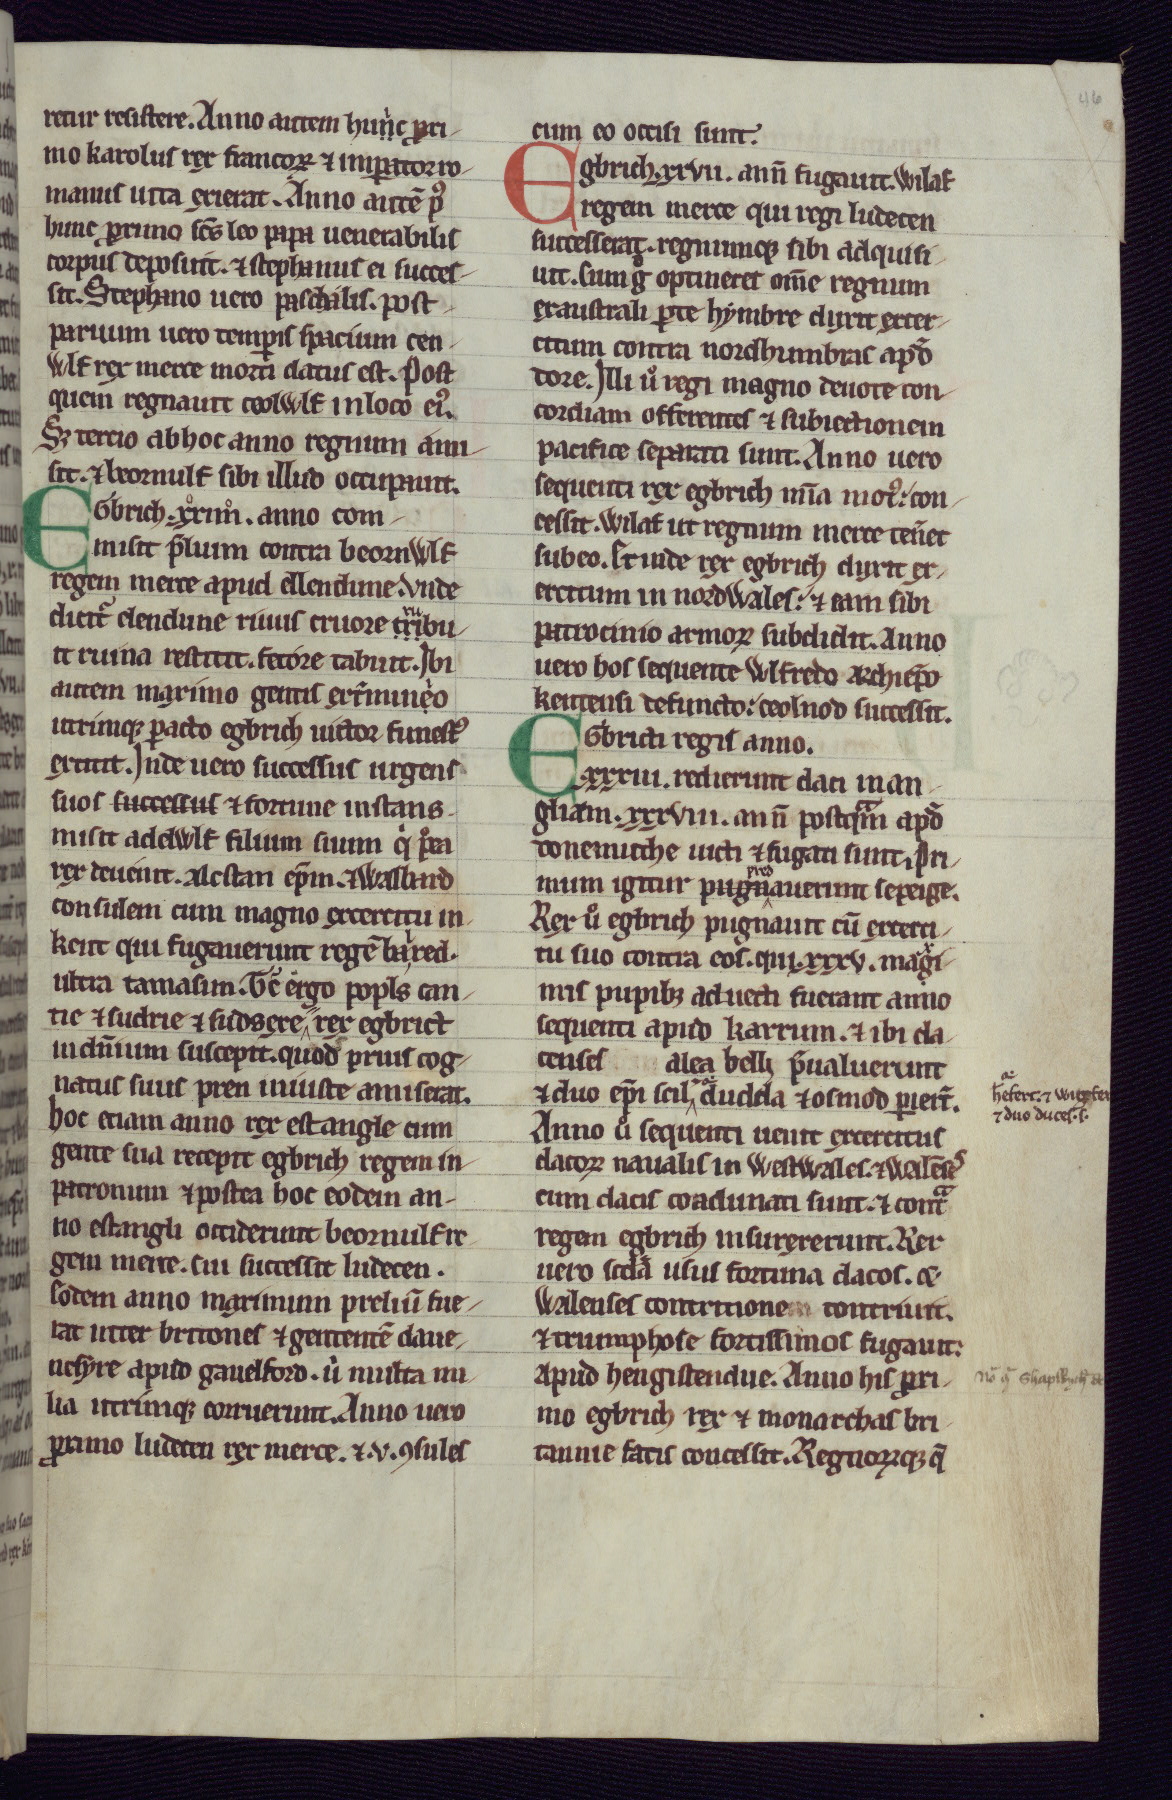 retur resistere. Anno autem hunc pri-
mo karolus rex francoꝝ ⁊ imꝑator ro-
manus uita exierat. Anno autē pꝰ
hunc primo scs̄ leo papa uenerabilis
corpus deposuit. ⁊ stephanus ei succes-
sit. Stephano uero paschalis. post
paruum uero temꝑis spacium cen-
wlf rex merce morti datus est. Post
quem regnauit ceolwlf in loco eiꝰ.
Sꝫ tercio ab hoc anno regnum ami-
sit. ⁊ beornulf sibi illud occupauit.
Egbrich. xxiiiiͦ. anno com-
misit p̄lium contra beornwlf
regem merce apud ellendune. Vnde
dicit᷑ elendune riuus cruore rubu-
it ruina restitit. fetore tabuit. Ibi
autem maximo gentis ext̄minio
utrimqꝫ ꝑacto egbrich uictor funestꝰ
extitit. Inde uero successus urgens
suos successus ⁊ fortune instans
misit adelwlf filium suum qͥ p̄ea
rex deuenit. Alestan ep̄m. ⁊ Walhard
consulem cum magno exercitu in
kent qui fugauerunt regē baldred.
ultra tamasim. Gē ergo popls̄ can-
tie ⁊ sudrie ⁊ sudsexe rex egbrict
in dn̄ium suscepit. quod prius cog-
natus suus pren iniuste amiserat.
hoc etiam anno rex estangle cum
gente sua recepit egbrich regem in
patronum ⁊ postea hoc eodem an-
no estangli occiderunt beornulf re-
gem merce. cui successit ludecen.
eodem anno maximum preliū fue-
rat inter britones ⁊ gententē daue-
nchyre apud gauelford. uͥ multa mi-
lia utrimqꝫ corruerunt. Anno uero
proximo ludecen rex merce. ⁊ .v. ꝯsules
cum eo occisi sunt.
Egbrich. xxvii. ann̄ fugauit. Wilaf
regem merce qui regi ludecen
successerat. regnumqꝫ sibi adquisi-
uit. Cum gͦ optineret om̄e regnum
ex australi ꝑte hymbre duxit exer-
citum contra nordhumbras apd̄
dore. Illi uͦ regi magno deuote con-
cordiam offerentes ⁊ subiectionem
pacifice separati sunt. Anno uero
sequenti rex egbrich mīa motꝰ: con-
cessit. Wilaf ut regnum merce ten̄et
sub eo. Et inde rex egbrich duxit ex-
ercitum in nordwales: ⁊ eam sibi
patrocinio armoꝝ subdidit. Anno
uero hos sequente Wlfredo archiep̄o
kentensi defuncto: ceolnod successit.
Egbricti regis anno.
xxxiii. redierunt daci in an-
gliam. xxxviii. ann̄ postqᷓm apd̄
donemuthe uicti ⁊ fugati sunt. Pri-
mum igitur pugnauerunt sepeige.
Rex uͦ egbrich pugnauit cū exerci-
tu suo contra eos. qui. xxxv. maxi-
mis pupibꝫ aduecti fuerant anno
sequenti apud karrum. ⁊ ibi da-
censes alea belli p̄ualuerunt
⁊ duo ep̄i scil. dudda ⁊ osmod ꝑiert̄.
Anno uͦ sequenti uenit exercitus
dacoꝝ naualis in Westwales. ⁊ Walēses
cum dacis coadunati sunt. ⁊ contᷓ
regem egbrich insurexerunt. Rex
uero scd̄a usus fortuna dacos. ⁊
Walenses contritione contriuit.
⁊ triumphose fortissimos fugauit:
Apud hengistendue. Anno his pri-
mo egbrich rex ⁊ monarchas bri-
tannie fatis concessit. Regnoꝝqꝫ q̄
herefert. ⁊ Wigfert
⁊ duo duces. s.